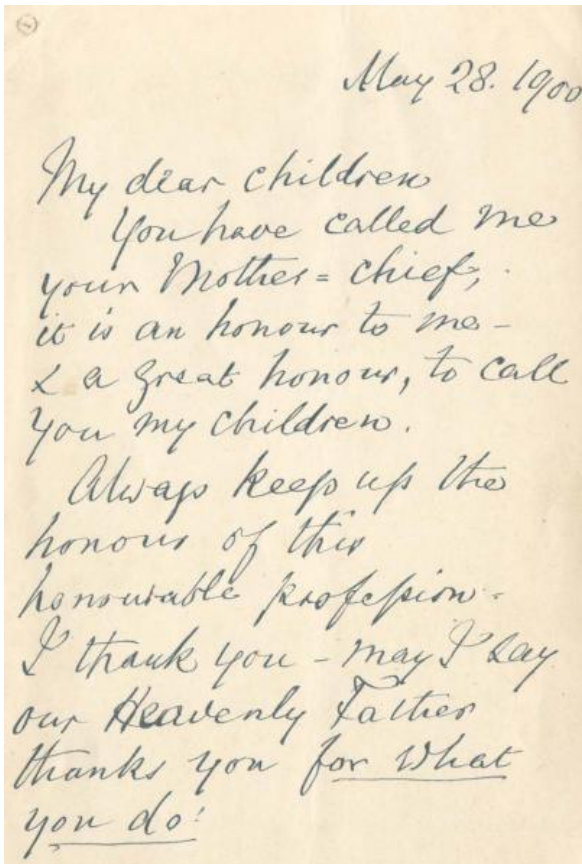 1
May 28. 1900
My dear children
You have called me
your Mother = chief,
it is an honour to me -
& a great honour, to call
you my children.
Always keep up the
honour of this
honourable profession -
I thank you - may I say
our Heavenly Father
thanks you for what
you do!